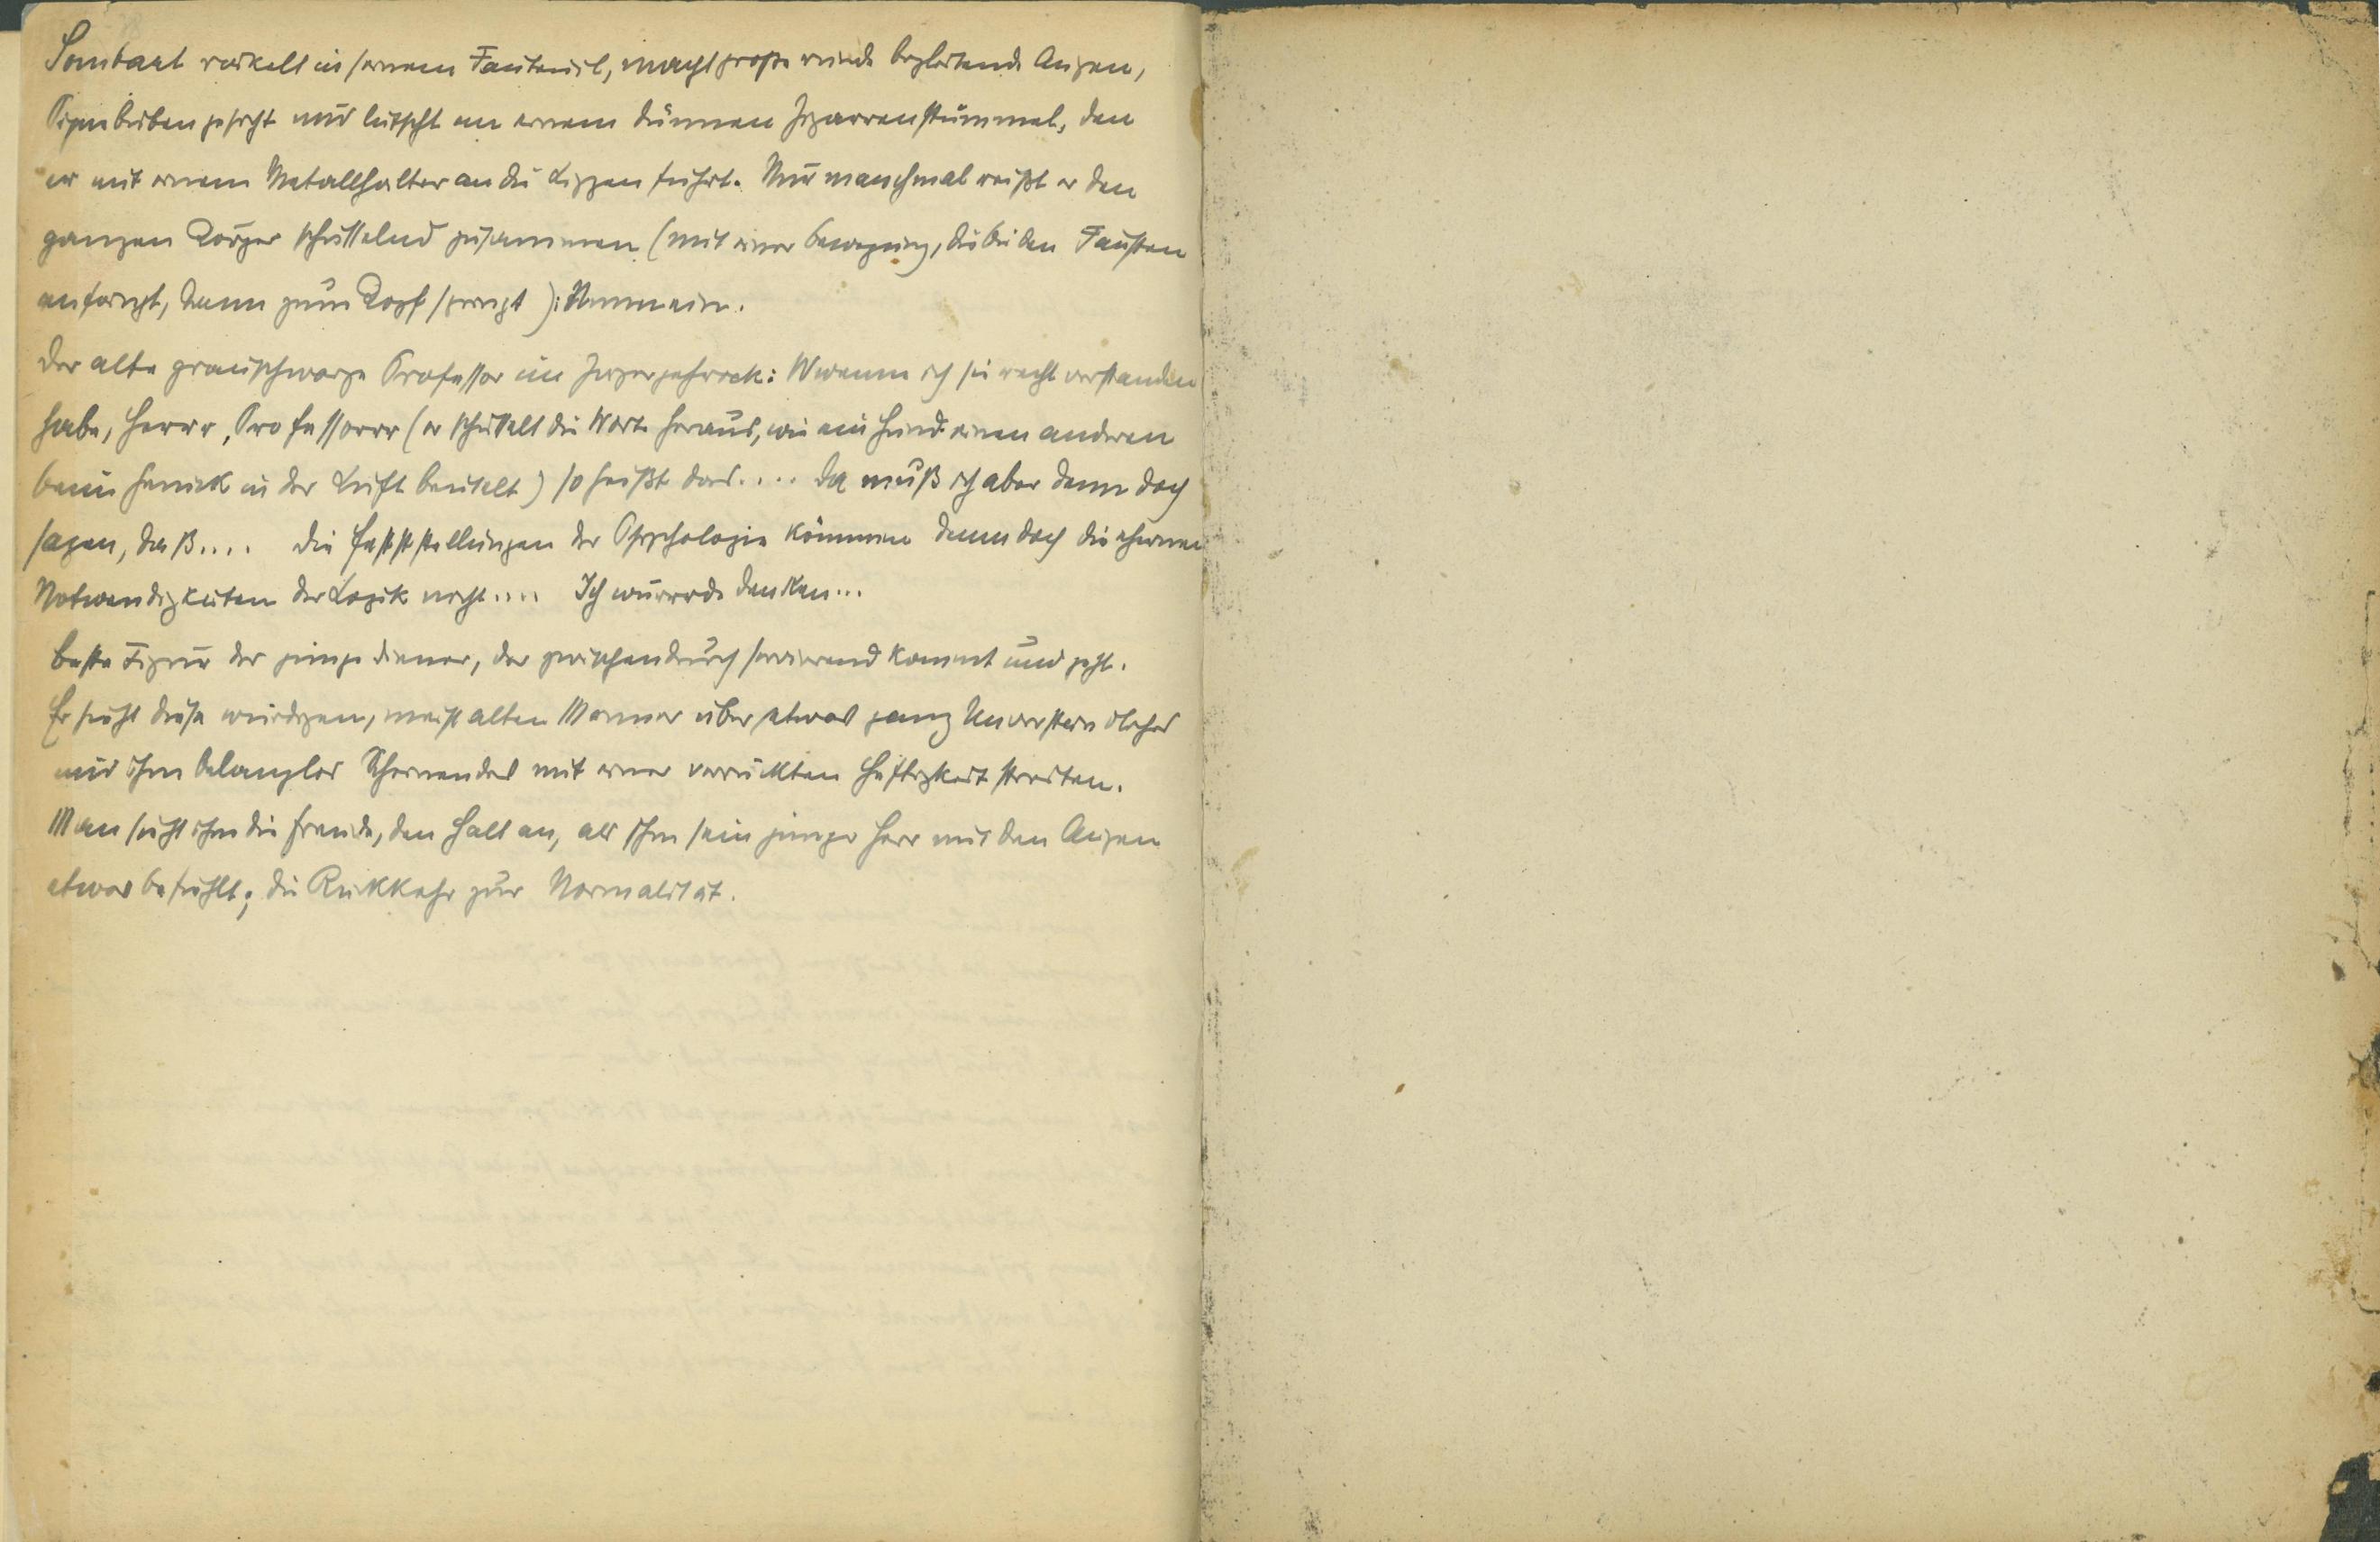 Sombart räkelt in seinem Fauteuil, macht große runde begleitende Augen,
Pignbubengesicht und lutscht an einem dünnen Zigarrenstummel, den
er mit einem Metallhalter an die Lippen führt. Nur manchmal reißt er den
ganzen Körper schüttelnd zusammen (mit einer Bewegung, die bei den Fäusten
anfängt, dann zum Kopf springt): Nunnnein.
Der alte grauschwarze Professor im Jägergehrock: Wwenn ich sie recht verstanden
habe, Herrr, Professorrr (er schüttelt die Worte heraus, wie ein Hund einen anderen
beim Genick in der Luft beutelt) so heißt das.... Da muß ich aber denn doch
sagen, daß.... Die Festststellungen der Psychologie können denn doch die ehernen
Notwendigkeiten der Logik nicht.... Ich würrrde denken...
Beste Figur der junge Diener, der zwischendurch servierend kommt und geht.
Er sieht diese würdigen, meist alten Männer über etwas ganz Unverständliches
und ihm belanglos Scheinendes mit einer verrückten Heftigkeit streiten.
Man sieht ihm die Freude, den Halt an, als ihm sein junger Herr mit den Augen
etwas befiehlt; die Rückkehr zur Normalität.